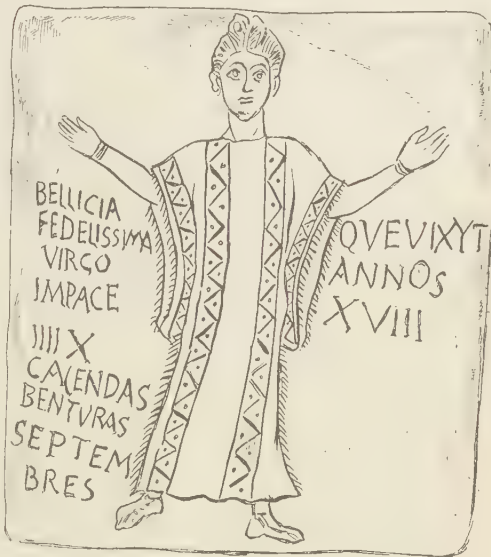 BELLICIA
FEDELISSIMA
VIRGO
IMPACE
IIII X
CALENDAS
BENTURAS
SEPTEM
BRES
QVEVIXYT
ANNOS
XVIII